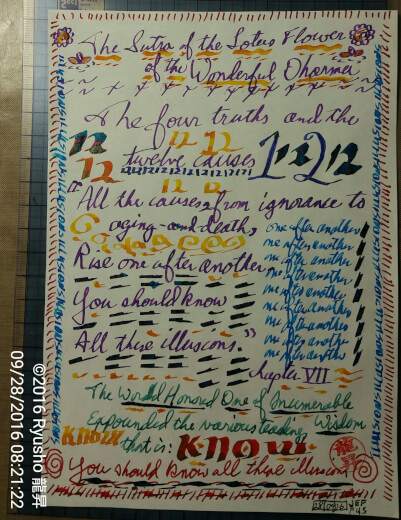 The Sutra of the Lotus Flower
of the Wonderful Dharma
The four truths and the
12 12 12
12 twelve causes 12 12 12
12 12 12 12 12 12 12 12 12
12 12
"All the causes, from ignorance to
aging-and-death,
one after another
Rise one after another
one after another
one after another
one after another
You should know
one after another
one after another
one after another
one after another
All these illusions."
one after another
Chapter VII
The World Honored One of Innumerable
Expounded the various teaching Wisdom
Know that is: Know
龍昇
You should know all these illusions
09/28/2016 08:21-22
©2016 Ryusho 龍昇